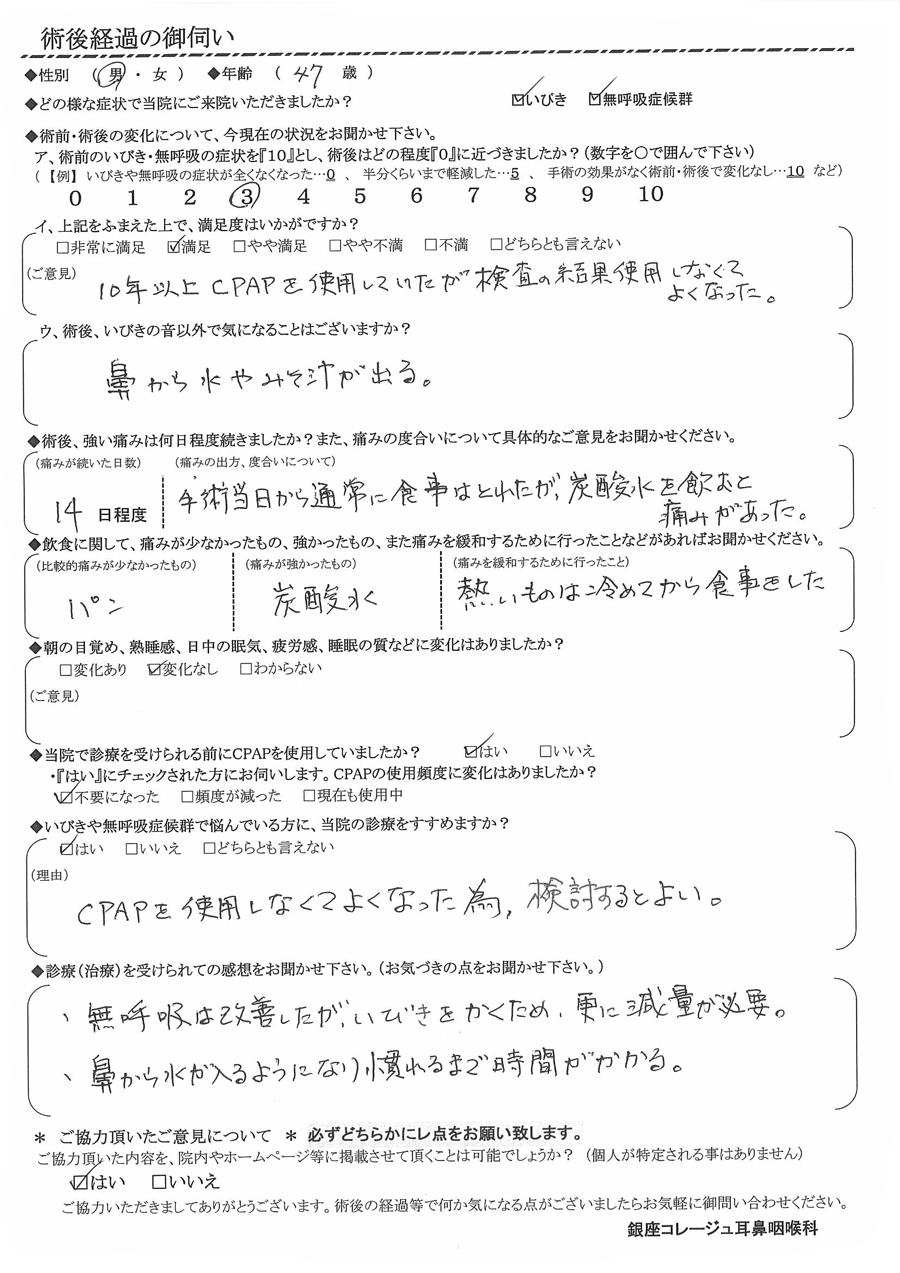 術後経過の御伺い
◆性別 （ 男 ・ 女 ） ◆年齢 （ 47 歳 ）
◆どの様な症状で当院にご来院いただきましたか？ ☑いびき ☑無呼吸症候群
◆術前・術後の変化について、今現在の状況をお聞かせ下さい。
ア、術前のいびき・無呼吸の症状を『10』とし、術後はどの程度『0』に近づきましたか？（数字を〇で囲んで下さい）
（【例】いびきや無呼吸の症状が全くなくなった…0 、 半分くらいまで軽減した…5 、 手術の効果がなく術前・術後で変化なし…10 など）
0 1 2 3 4 5 6 7 8 9 10
イ、上記をふまえた上で、満足度はいかがですか？
□非常に満足 ☑満足 □やや満足 □やや不満 □不満 □どちらとも言えない
（ご意見）
10年以上CPAPを使用していたが検査の結果使用しなくて
よくなった。
ウ、術後、いびきの音以外で気になることはございますか？
鼻から水やみそ汁が出る。
◆術後、強い痛みは何日程度続きましたか？また、痛みの度合いについて具体的なご意見をお聞かせください。
（痛みが続いた日数） （痛みの出方、度合いについて）
14 日程度 手術当日から通常に食事はとれたが、炭酸水を飲むと
痛みがあった。
◆飲食に関して、痛みが少なかったもの、強かったもの、また痛みを緩和するために行ったことなどがあればお聞かせください。
（比較的痛みが少なかったもの） （痛みが強かったもの） （痛みを緩和するために行ったこと）
パン 炭酸水 熱いものは冷めてから食事をした
◆朝の目覚め、熟睡感、日中の眠気、疲労感、睡眠の質などに変化はありましたか？
□変化あり ☑変化なし □わからない
（ご意見）
◆当院で診療を受けられる前にCPAPを使用していましたか？ ☑はい □いいえ
・『はい』にチェックされた方にお伺いします。CPAPの使用頻度に変化はありましたか？
☑不要になった □頻度が減った □現在も使用中
◆いびきや無呼吸症候群で悩んでいる方に、当院の診療をすすめますか？
☑はい □いいえ □どちらとも言えない
（理由）
CPAPを使用しなくてよくなった為、検討するとよい。
◆診療（治療）を受けられての感想をお聞かせ下さい。（お気づきの点をお聞かせ下さい。）
、無呼吸は改善したが、いびきをかくため、更に減量が必要。
、鼻から水が入るようになり慣れるまで時間がかかる。
＊ ご協力頂いたご意見について ＊ 必ずどちらかにレ点をお願い致します。
ご協力頂いた内容を、院内やホームページ等に掲載させて頂くことは可能でしょうか？（個人が特定される事はありません）
☑はい □いいえ
ご協力いただきましてありがとうございます。術後の経過等で何か気になる点がございましたらお気軽に御問い合わせください。
銀座コレージュ耳鼻咽喉科